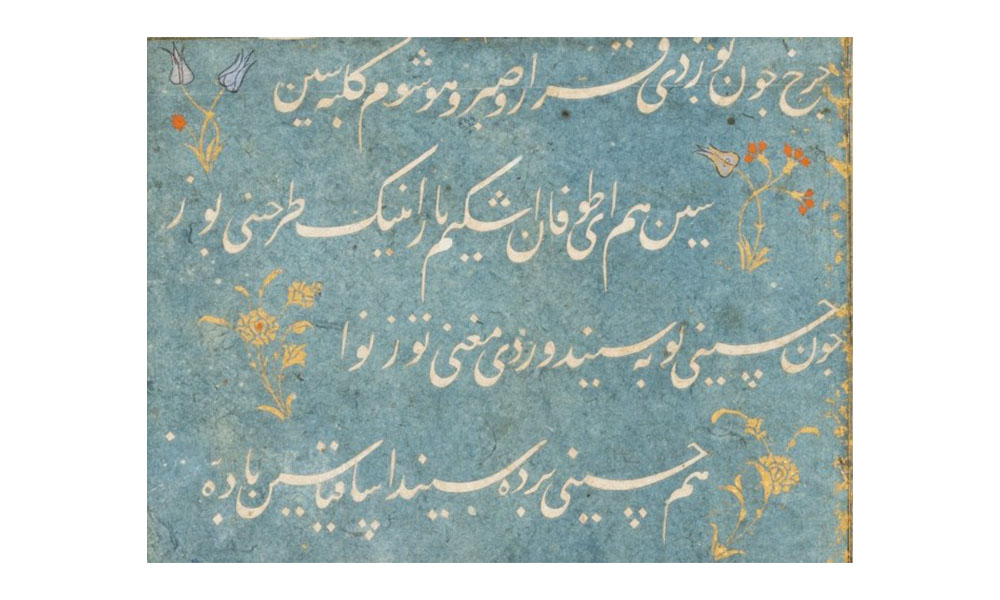 چرخ چون بوزدی قرار و صبر و هوشوم کلبه سین
سین هم ای طوفان اشکیم بار انینک طرحینی بوز
چون حسینی توبه سیندوردی مغنی توز نوا
هم حسینی پرده سیندا ساقیا سین باده